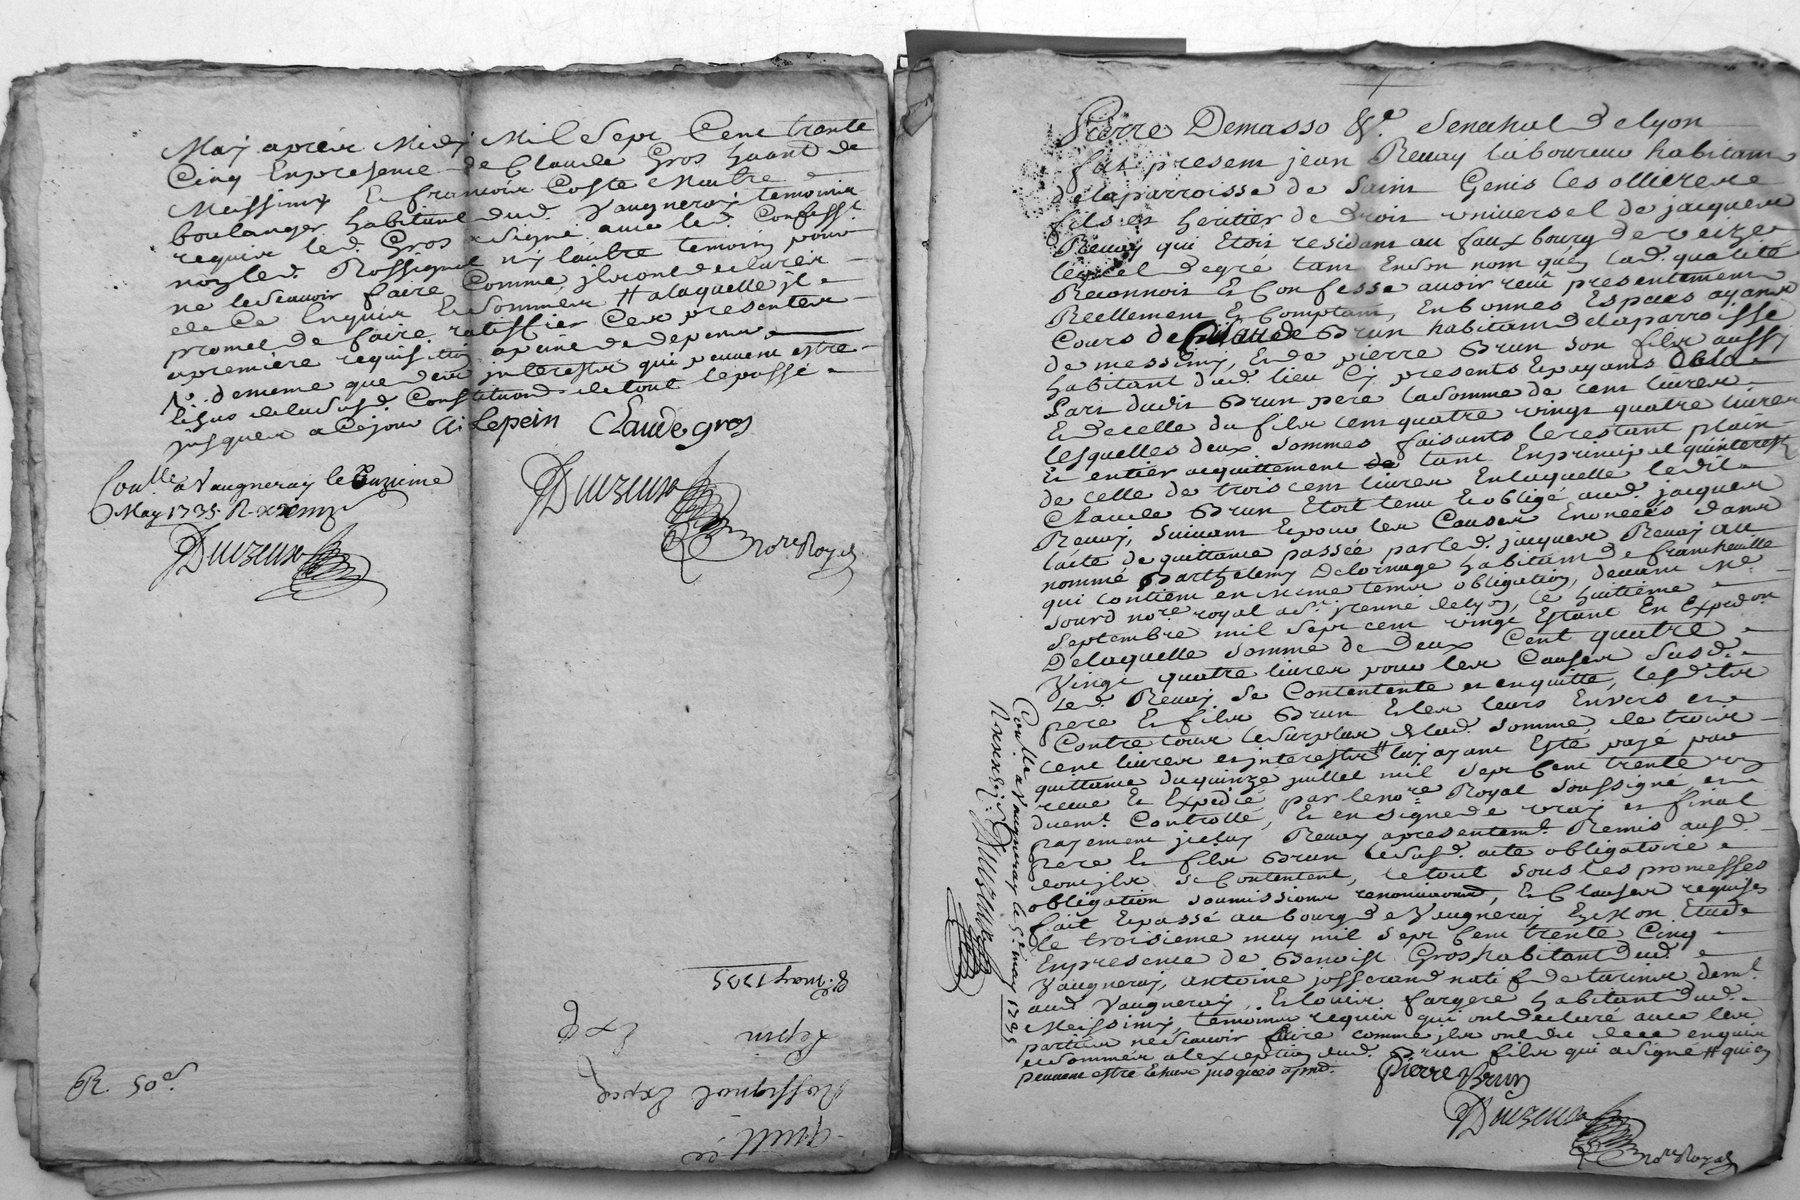 May apres Midy Mil Sept Cent trente
Cinq En presence de Claude Gros habitant de
Meissimy Et francois Coste Maitre
boulanger habitant dud. Vaugneray temoins
requis led. Gros a signé avec led. Confess.
non led. Rossignol ny l'autre temoin pour
ne le scavoir faire comme ils ont declaré
de ce Enquis Et sommés # a laquelle il
promet de faire ratiffier Ces presentes
a premiere requisition a peine de depens
# de meme que des interests qui peuvent estre
Constitution de tout le passé
jusques a Ce jour A: Lepein Claude gros
Conllé a Vaugneray le onzieme
May 1735. R
Duczeux
Duczeux
nore Royal
may 1735
Lepin Exp
Rossignol Exped
quitt.ce
Pierre Demasso &c. Senechal de lyon
fut present jean Revay laboureur habitant
de la parroisse de Saint Genis les ollieres
fils et heritier de droit universel de jacques
Revay qui Etoit residant au faux bourg de veize
lequel de gré tant En son nom qu'en lad. qualité
Reconnoit Et Confesse avoir reçu presentement
Reellement Et Comptant, En bonnes Espaces ayant
Cours de Claude Brun habitant de la parroisse
de messimy, Et de pierre Brun son fils aussy
habitant dud. lieu Cy presents Et payants De la
Part dudit Brun pere la somme de cent livres
Et de celle du fils cent quatre vingt quatre livres
lesquelles deux sommes faisants le restant plain
Et entier acquittement de tant En principal qu'interest
de celle de trois cent livres En laquelle ledit
Claude Brun Etoit tenu Et obligé aud. jacques
Revay, suivant Et pour les Causes Enoncées dans
l'acte de quittance passée par led. jacques Revay au
nommé Barthelemy Delornage habitant de francheville
qui contient en meme tems obligation, devant Me.
Sourd nore. royal a St. jrenné de lyon, le huitieme
Septembre mil sept cent vingt Estant En Expedon.
De laquelle somme de Deux Cent quatre
Vingt quatre livres pour les Causes Susd.
Led. Revay Se Contentente et en quitte, lesdits
pere Et fils Brun Et les leurs Envers et
Contre tous le surplus de lad. somme de trois
cent livres et interests # luy ayant Esté payé par
quittance du quinze juillet mil sept Cent trente
recue Et Expedié par le nore. Royal soussigné et
duemt. Controllé, Et en signe de vray et final
payement jceluy Revay a presentemt. Remis aud.
Pere Et fils Brun le susd. acte obligatoire
dont jls se Contentent, le tout sous les promesses
obligation soumissions renonciaons, Et Clauses requises
fait Et passé au bourg de Vaugneray Et Mon Etude
le troisieme may mil sept Cent trente Cinq
En presence de Benoist Gros habitant dud.
Vaugneray, antoine josserand natif de tarinne demt.
aud. Vaugneray, Et louis fargere habitant dud.
Meissimy, temoins requis qui ont declaré avec les
parties ne scavoir faire comme jls ont dit de ce enquis
et sommés a l'exception dud. Brun fils qui a signé # qui en
peuvent estre Echus jusques apnt. Pierre Brun
Duczeux
nore Royal
Conllé a Vaugneray le 5e. may 1735